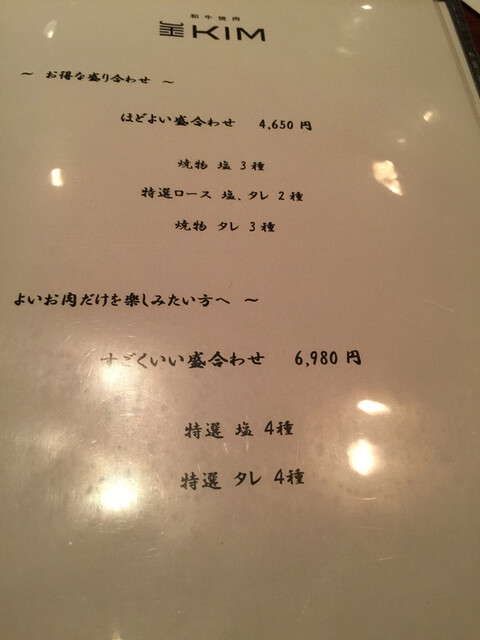 和牛焼肉
KIM
～ お得な盛り合わせ ～
ほどよい盛合わせ 4,650 円
焼物 塩 3 種
特選ロース 塩、タレ 2 種
焼物 タレ 3 種
よいお肉だけを楽しみたい方へ ～
すごくいい盛合わせ 6,980 円
特選 塩 4種
特選 タレ 4種